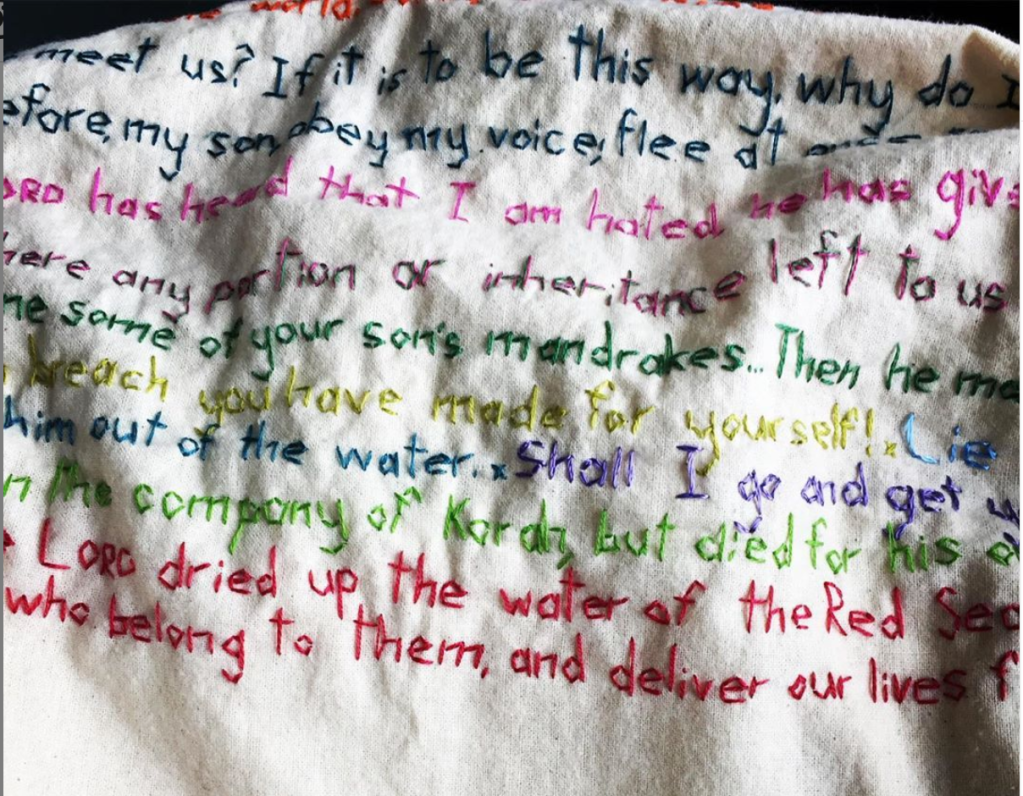 world,
meet us? If it is to be this way, why do I
efore, my son, obey my voice; flee at
ORD has heard that I am hated he has give
here any portion or inheritance left to us
me some of your son's mandrakes... Then he ma
breach you have made for yourself! x Lie
him out of the water. x Shall I go and get
n the company of Korah, but died for his
LORD dried up the water of the Red Sea
who belong to them, and deliver our lives f